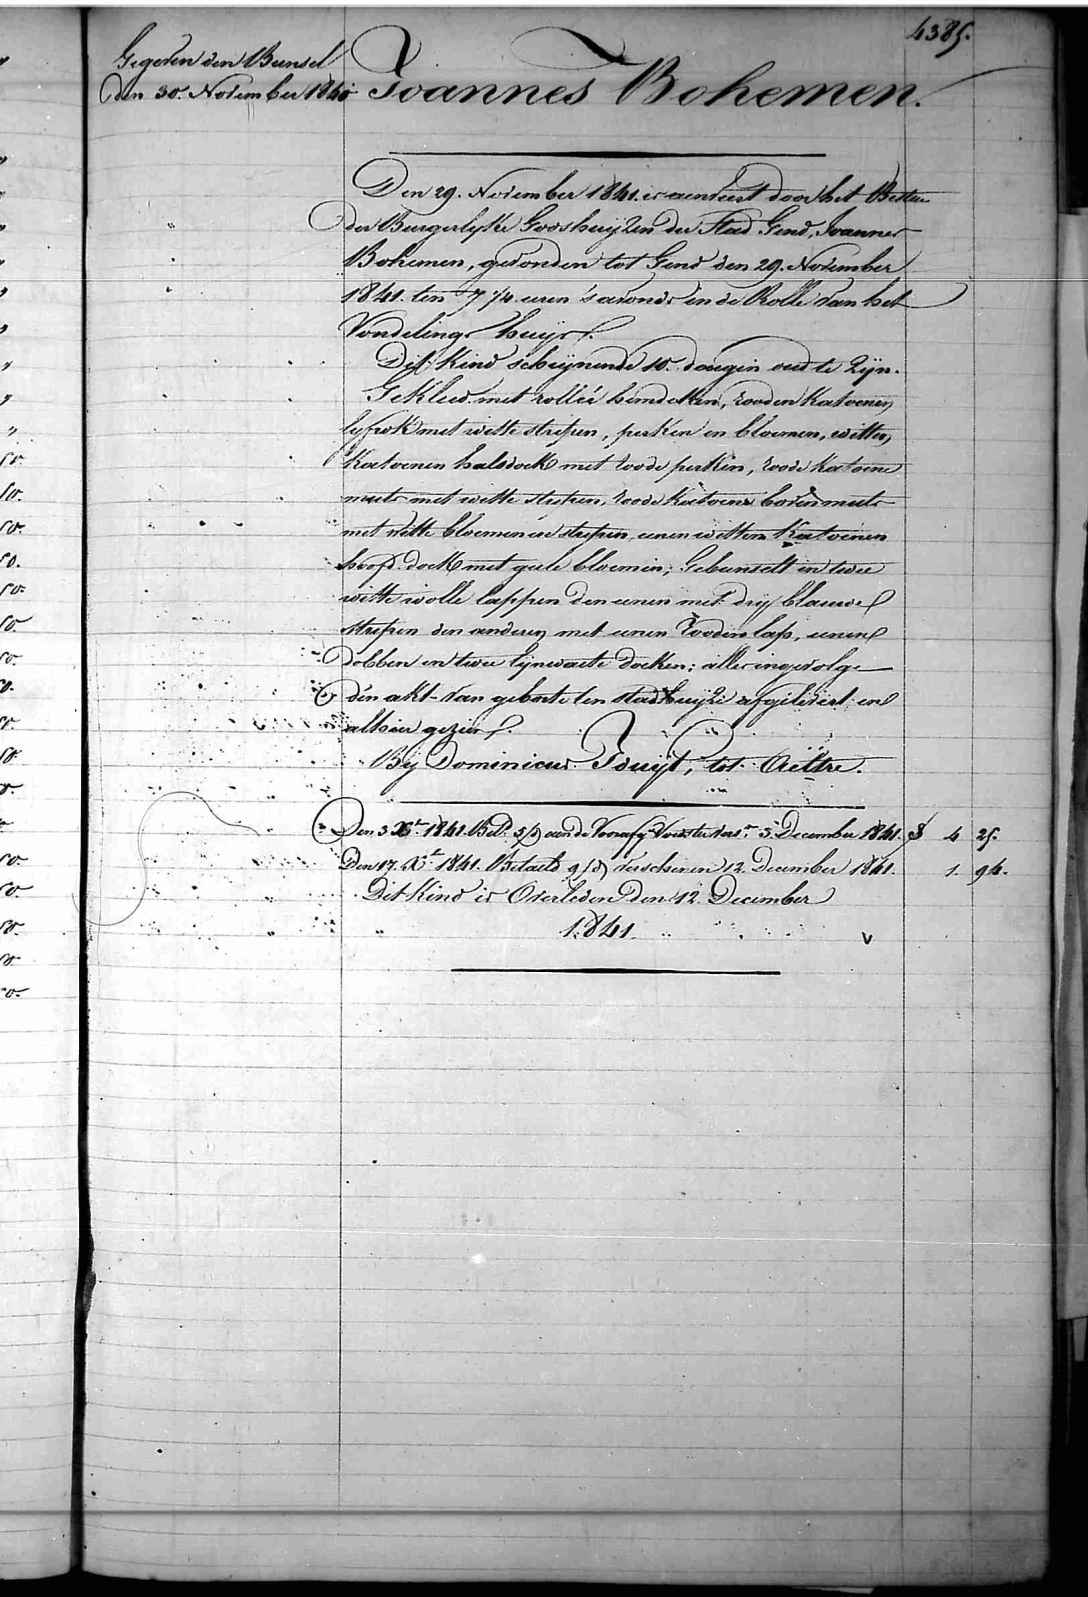 4385.
Gegeven den Bunsel
Den 30. November 1840
Joannes Bohemen.
Den 29. November 1841. is aenveert door het Bestier
der Burgerlyke Godshuyzen der Stad Gend, Joannes
Bohemen, gevonden tot Gend den 29. November
1841. ten 7 1/4 uren 's avonds in de Rolle van het
Vondelings huys.
Dit Kind schynende 10. daegen oud te Zyn.
Gekleed met hemdeken, rooden Katoenen
lyfrok met witte strepen, perken en bloemen, witten
Katoenen halsdoek met roode perken, roode Katoene
muts met witte strepen, roode Katoene boven muts
met witte bloemen en strepen, eenen witten Katoenen
hoofd doek met geele bloemen; Gebunselt in twee
witte wolle lappen den eenen met dry blauwe
strepen den anderen met eenen rooden lap, eenen
Dobben en twee lynwaete doeken: alles ingevolge
den akt van geboorte ten stadhuyze afgelevert en
alhier gezien.
By Dominicus tot Aeltre.
Den 3 Xbr 1841. Bet. aen de 5 December 1841. 4 25.
Den 17. Xbr 1841. Betaeld verschenen 12. December 1841. 1. 94.
Dit Kind is Overleden Den 12. December
1841.